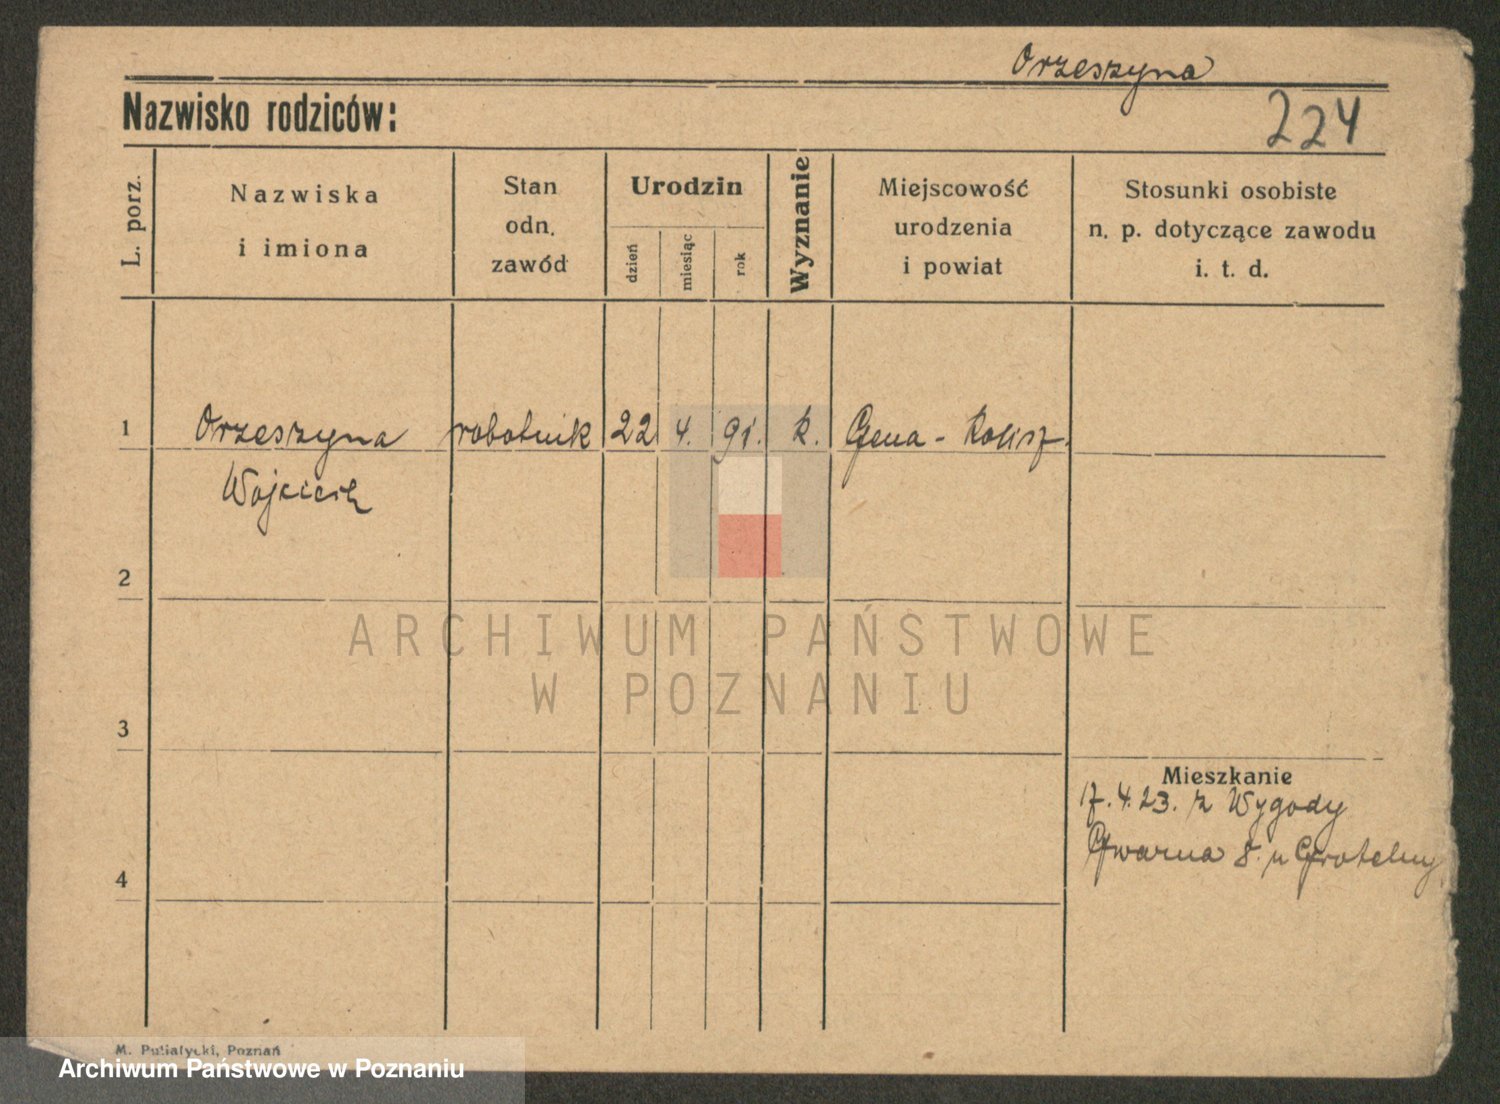 Orzeszyna
Nazwisko rodziców:
224
L. porz.
Nazwiska
i imiona
Stan
odn.
zawód
Urodzin
dzień
miesiąc
rok
Wyznanie
Miejscowość
urodzenia
i powiat
Stosunki osobiste
n. p. dotyczące zawodu
i. t. d.
1
Orzeszyna robotnik 22 4. 91. k.
Wojciech
2
ARCHIWUM PAŃSTWOWE
W POZNANIU
3
Mieszkanie
17.4.23. z Wygody
4
Gwarna 8.
M. Putiatycki, Poznań
Archiwum Państwowe w Poznaniu